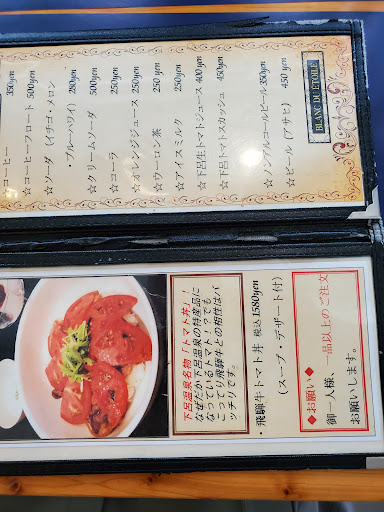 コーヒー 350yen
☆コーヒーフロート 500yen
☆ソーダ（イチゴ・メロン
・ブルーハワイ） 280yen
☆クリームソーダ 500yen
☆コーラ 250yen
☆オレンジジュース 250yen
☆ウーロン茶 250yen
☆アイスミルク 250yen
☆下呂生トマトジュース 400yen
☆下呂トマトスカッシュ 450yen
☆ノンアルコールビール 350yen
☆ビール（アサヒ） 450yen
BLANC DU ETOILE
下呂温泉名物！トマト丼！
なぜだか下呂温泉の特産品に
なっているトマト！？でも
こってり飛騨牛との相性はバ
ッチリです。
・飛騨牛トマト丼 税込 1580yen
（スープ・デザート付）
◆お願い◆
御一人様、一品以上のご注文
お願いします。